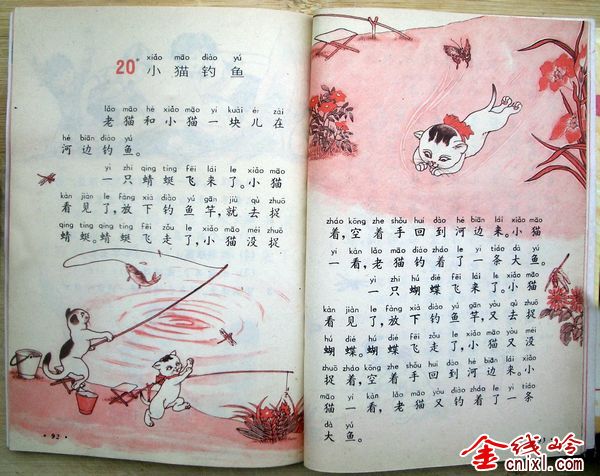 xiǎo māo diào yú
20* 小猫钓鱼
lǎo māo hé xiǎo māo yí kuàir zài
老猫和小猫一块儿在
hé biān diào yú
河边钓鱼。
yì zhī qīng tíng fēi lái le xiǎo māo
一只蜻蜓飞来了。小猫
kàn jiàn le fàng xià diào yú gān jiù qù zhuō
看见了，放下钓鱼竿，就去捉
qīng tíng qīng tíng fēi zǒu le xiǎo māo méi zhuō
蜻蜓。蜻蜓飞走了，小猫没捉
·92·
zháo kōng zhe shǒu huí dào hé biān lái xiǎo māo
着，空着手回到河边来。小猫
yí kàn lǎo māo diào zháo le yì tiáo dà yú
一看，老猫钓着了一条大鱼。
yì zhī hú dié fēi lái le xiǎo māo
一只蝴蝶飞来了。小猫
kàn jiàn le fàng xià diào yú gān yòu qù zhuō
看见了，放下钓鱼竿，又去捉
hú dié hú dié fēi zǒu le xiǎo māo yòu méi
蝴蝶。蝴蝶飞走了，小猫又没
zhuō zháo kōng zhe shǒu huí dào hé biān lái xiǎo
捉着，空着手回到河边来。小
māo yí kàn lǎo māo yòu diào zháo le yì tiáo
猫一看，老猫又钓着了一条
dà yú
大鱼。
金线岭
cnlxl.com